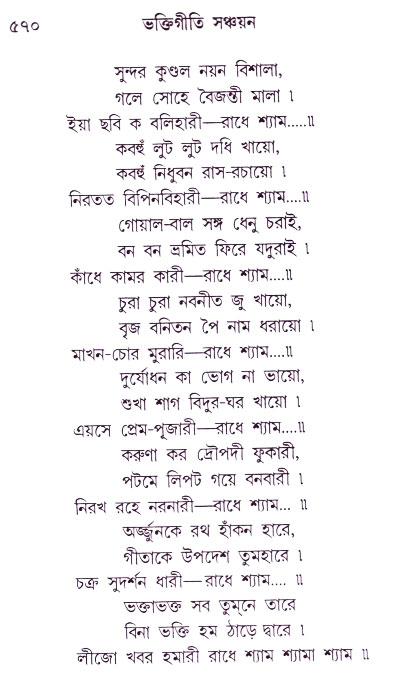 ৫৭০ ভক্তিগীতি সঞ্চয়ন
সুন্দর কুণ্ডল নয়ন বিশালা,
গলে সোহে বৈজন্তী মালা ৷
ইয়া ছবি ক বলিহারী—রাধে শ্যাম.....॥
কবহুঁ লুট লুট দধি খায়ো,
কবহুঁ নিধুবন রাস-রচায়ো ৷
নিরতত বিপিনবিহারী—রাধে শ্যাম....॥
গোয়াল-বাল সঙ্গ ধেনু চরাই,
বন বন ভ্রমিত ফিরে যদুরাই ৷
কাঁধে কামর কারী—রাধে শ্যাম....॥
চুরা চুরা নবনীত জু খায়ো,
বৃজ বনিতন পৈ নাম ধরায়ো ৷
মাখন-চোর মুরারি—রাধে শ্যাম....॥
দুর্যোধন কা ভোগ না ভায়ো,
শুখা শাগ বিদুর-ঘর খায়ো ৷
এয়সে প্রেম-পূজারী—রাধে শ্যাম....॥
করুণা কর দ্রৌপদী ফুকারী,
পটমে লিপট গয়ে বনবারী ৷
নিরখ রহে নরনারী—রাধে শ্যাম... ॥
অর্জ্জুনকে রথ হাঁকন হারে,
গীতাকে উপদেশ তুমহারে ৷
চক্র সুদর্শন ধারী—রাধে শ্যাম.... ॥
ভক্তাভক্ত সব তুম্‌নে তারে
বিনা ভক্তি হম ঠাড়ে দ্বারে ৷
লীজো খবর হমারী রাধে শ্যাম শ্যামা শ্যাম ॥